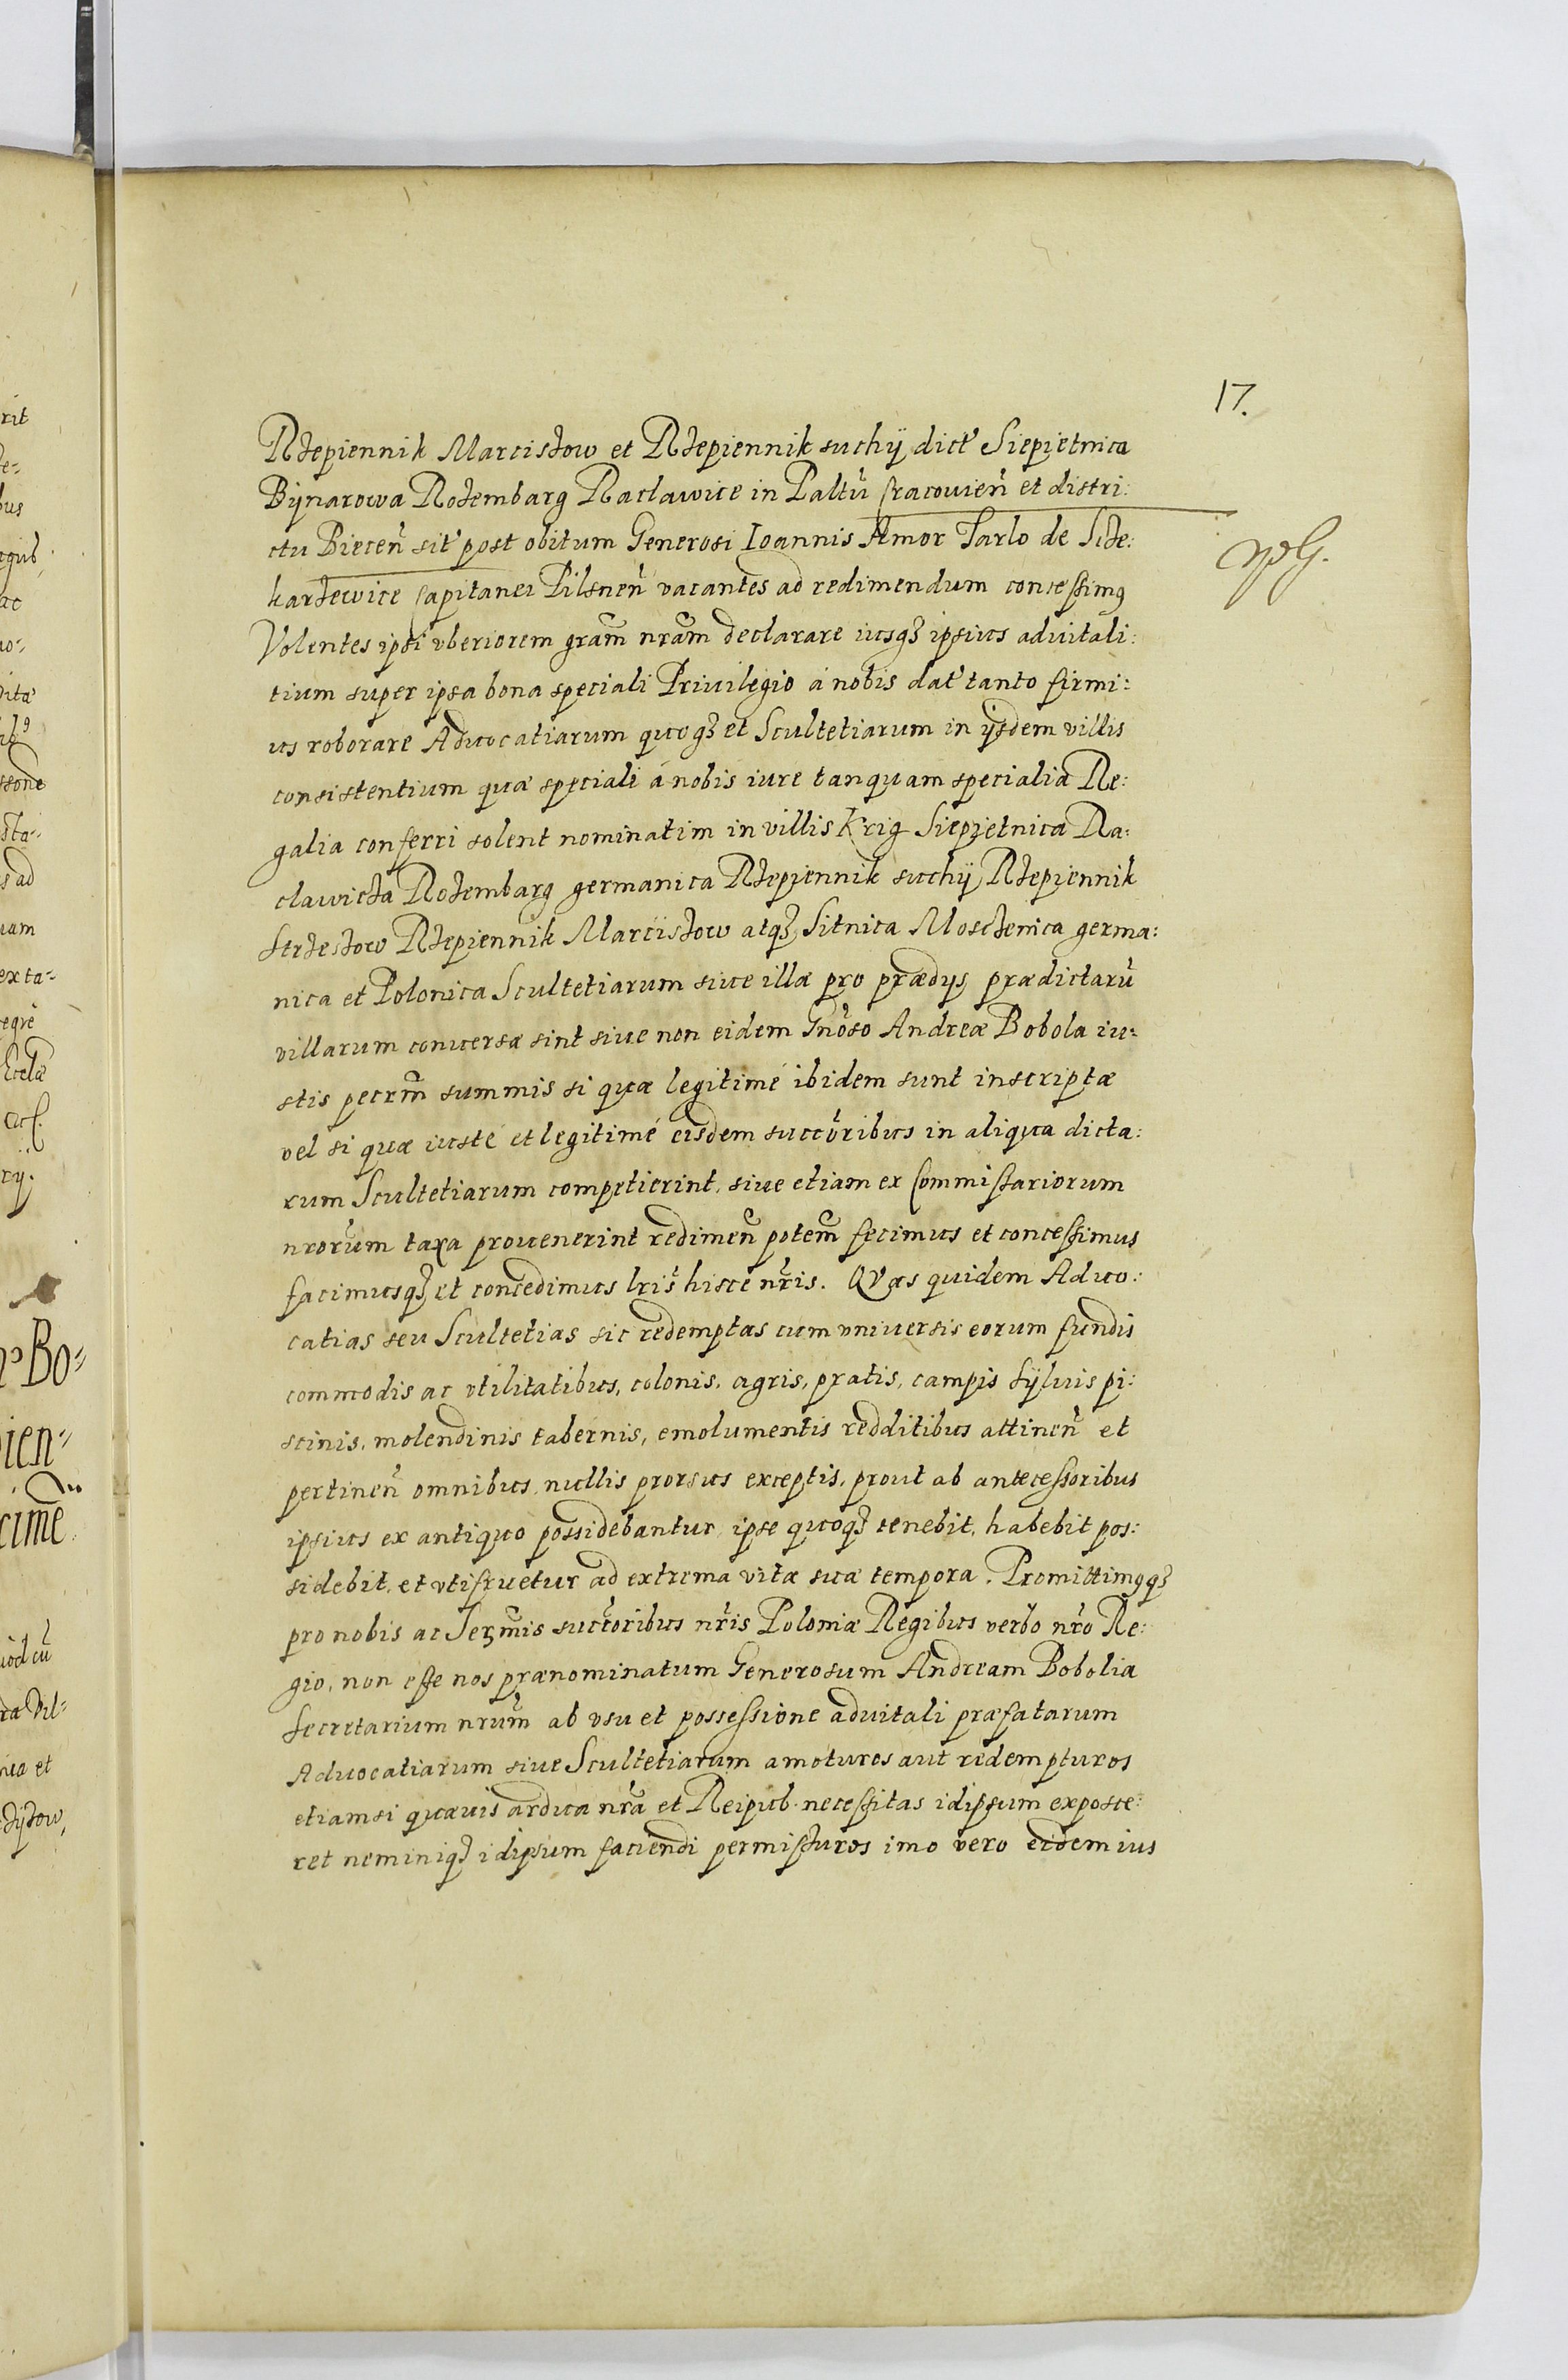 17.
Rzepiennik Marciszow et Rzepiennik suchÿ dict Siepietnica
Bÿnarowa Rozembarg Raclawice in Paltu Cracouien et distri:
ctu Biecen sit post obitum Generosi Ioannis Amor Tarlo de Scze:
karzewice Capitanei Pilsnen vacantes ad redimendum concessimus
Volentes ipsi vberiorem gram nram declarare iusq ipsius aduitali:
tium super ipsa bona speciali Priuilegio a nobis dat tanto firmi:
us roborare Aduocatiarum quoq et Scultetiarum in ijsdem villis
consistentium quæ speciali á nobis iure tanquam specialia Re:
galia conferri solent nominatim in villis Krig Siepietnica Ra:
clawicza Rozembarg germanica Rzepiennik suchÿ Rzepiennik
Strzeszow Rzepiennik Marciszow atq Sitnica Mosczenica germa:
nica et Polonica Scultetiarum siue illæ pro prædijs prædictaru
villarum conuersæ sint siue non eidem Gnoso Andreæ Bobola iu:
stis pecrm summis si quæ legitimé ibidem sunt inscriptæ
vel si quæ iusté et legitimé eisdem succoribus in aliqua dicta:
rum Scultetiarum competierint, siue etiam ex Commissariorum
nrorum taxa prouenerint redimen potem fecimus et concessimus
facimusq et concedimus lris hisce nris. Quas quidem Aduo:
catias seu Scultetias sic redemptas cum vniuersis eorum fundis
commodis ac vtilitatibus, colonis, agris, pratis, campis sÿluis pi:
scinis, molendinis tabernis, emolumentis redditibus attinen et
pertinen omnibus, nullis prorsus exceptis, prout ab antecessoribus
ipsius ex antiquo possidebantur ipse quoq tenebit, habebit pos:
sidebit, et vtifruetur ad extrema vitæ suæ tempora. Promittimusq
pro nobis ac Sermis succoribus nris Poloniæ Regibus verbo nro Re:
gio, non esse nos prænominatum Generosum Andream Bobolia
Secretarium nrum ab vsu et possessione aduitali præfatarum
Aduocatiarum siue Scultetiarum amoturos aut redempturos
etiamsi quæuis ardua nra et Reipub. necessitas idipsum exposce:
ret neminiq idipsum faciendi permissuros imo vero eidem ius